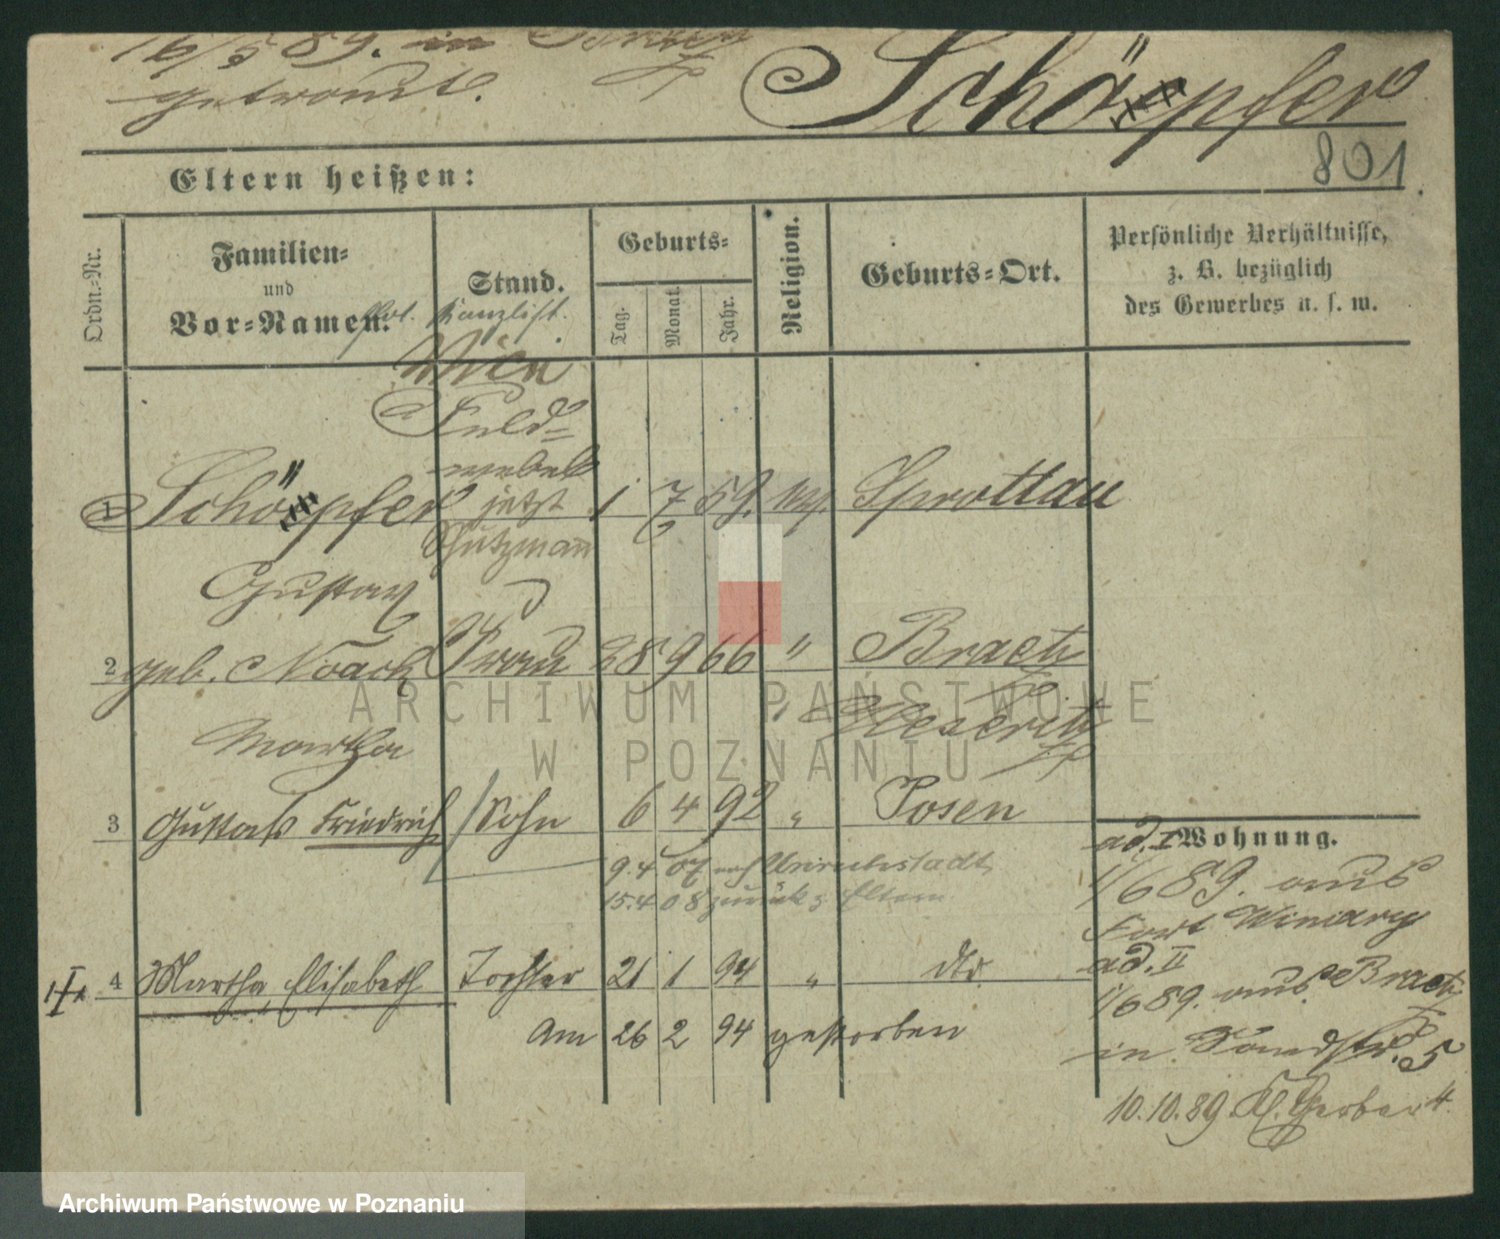 16/5 89. in
getraut.
Schöpfer
801
Eltern heißen:
Ordn.-Nr.
Familien-
und
Vor-Namen.
Stand.
Geburts-
Tag.
Monat.
Jahr.
Religion.
Geburts-Ort.
Persönliche Verhältnisse,
z. B. bezüglich
des Gewerbes u. s. w.
Kanzlist.
Feld=
webel
1 Schöpfer jetzt 1 7 59. Sprottau
Schutzmann
Gustav
2 geb. Noack Frau 28 9 66 " Braetz
Martha Meseritz
3 Gustav Friedrich Sohn 6 4 92 " Posen
9.4 07 nach Unruhstadt
15.4 08 zurück z Eltern
4 Martha, Elisabeth Tochter 21 1 94 " dto
Am 26 2 94 gestorben
Wohnung.
ad. I
1/6 89. aus
Fort Winiary
ad. II
1/6 89. aus Braetz
in 5
10.10.89 Kl. Gerberstr 4.
ARCHIWUM PAŃSTWOWE
W POZNANIU
Archiwum Państwowe w Poznaniu